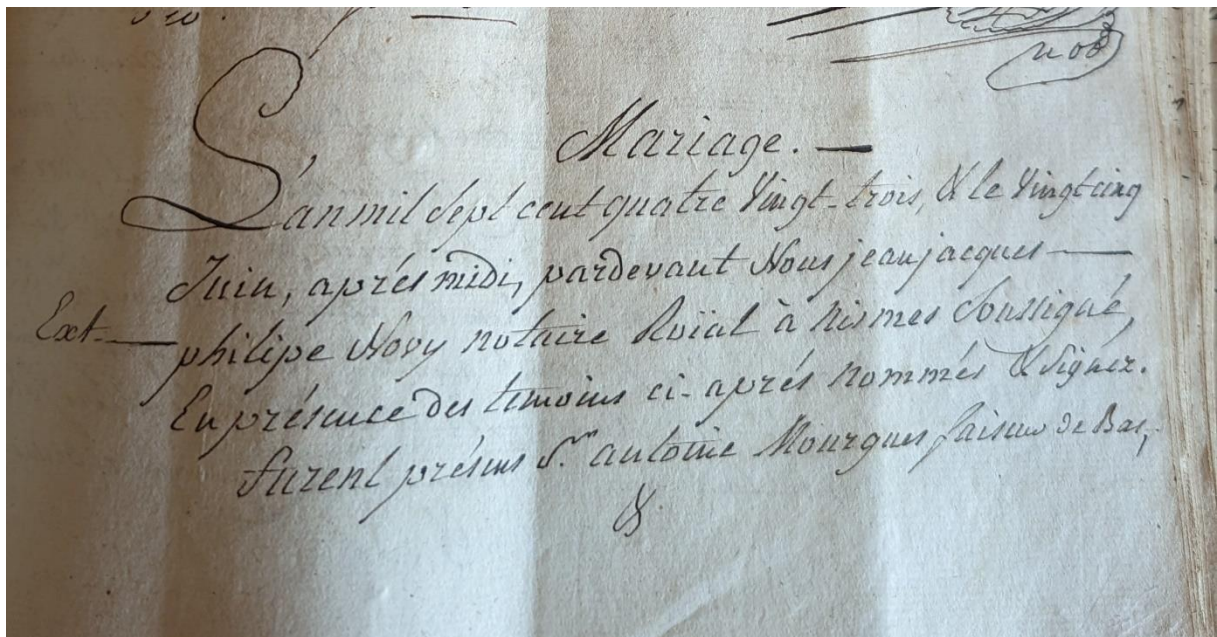 Mariage. —
L'an mil Sept cent quatre Vingt-trois, & le Vingt cinq
Juin, aprés midi, pardevant Nous jean jacques —
Ext. — philipe Novy notaire Roïal à Nismes Soussigné,
En présence des temoins ci-aprés nommés & Signéz.
furent présens Sr. antoine Mourgues faiseur de Bas,
&